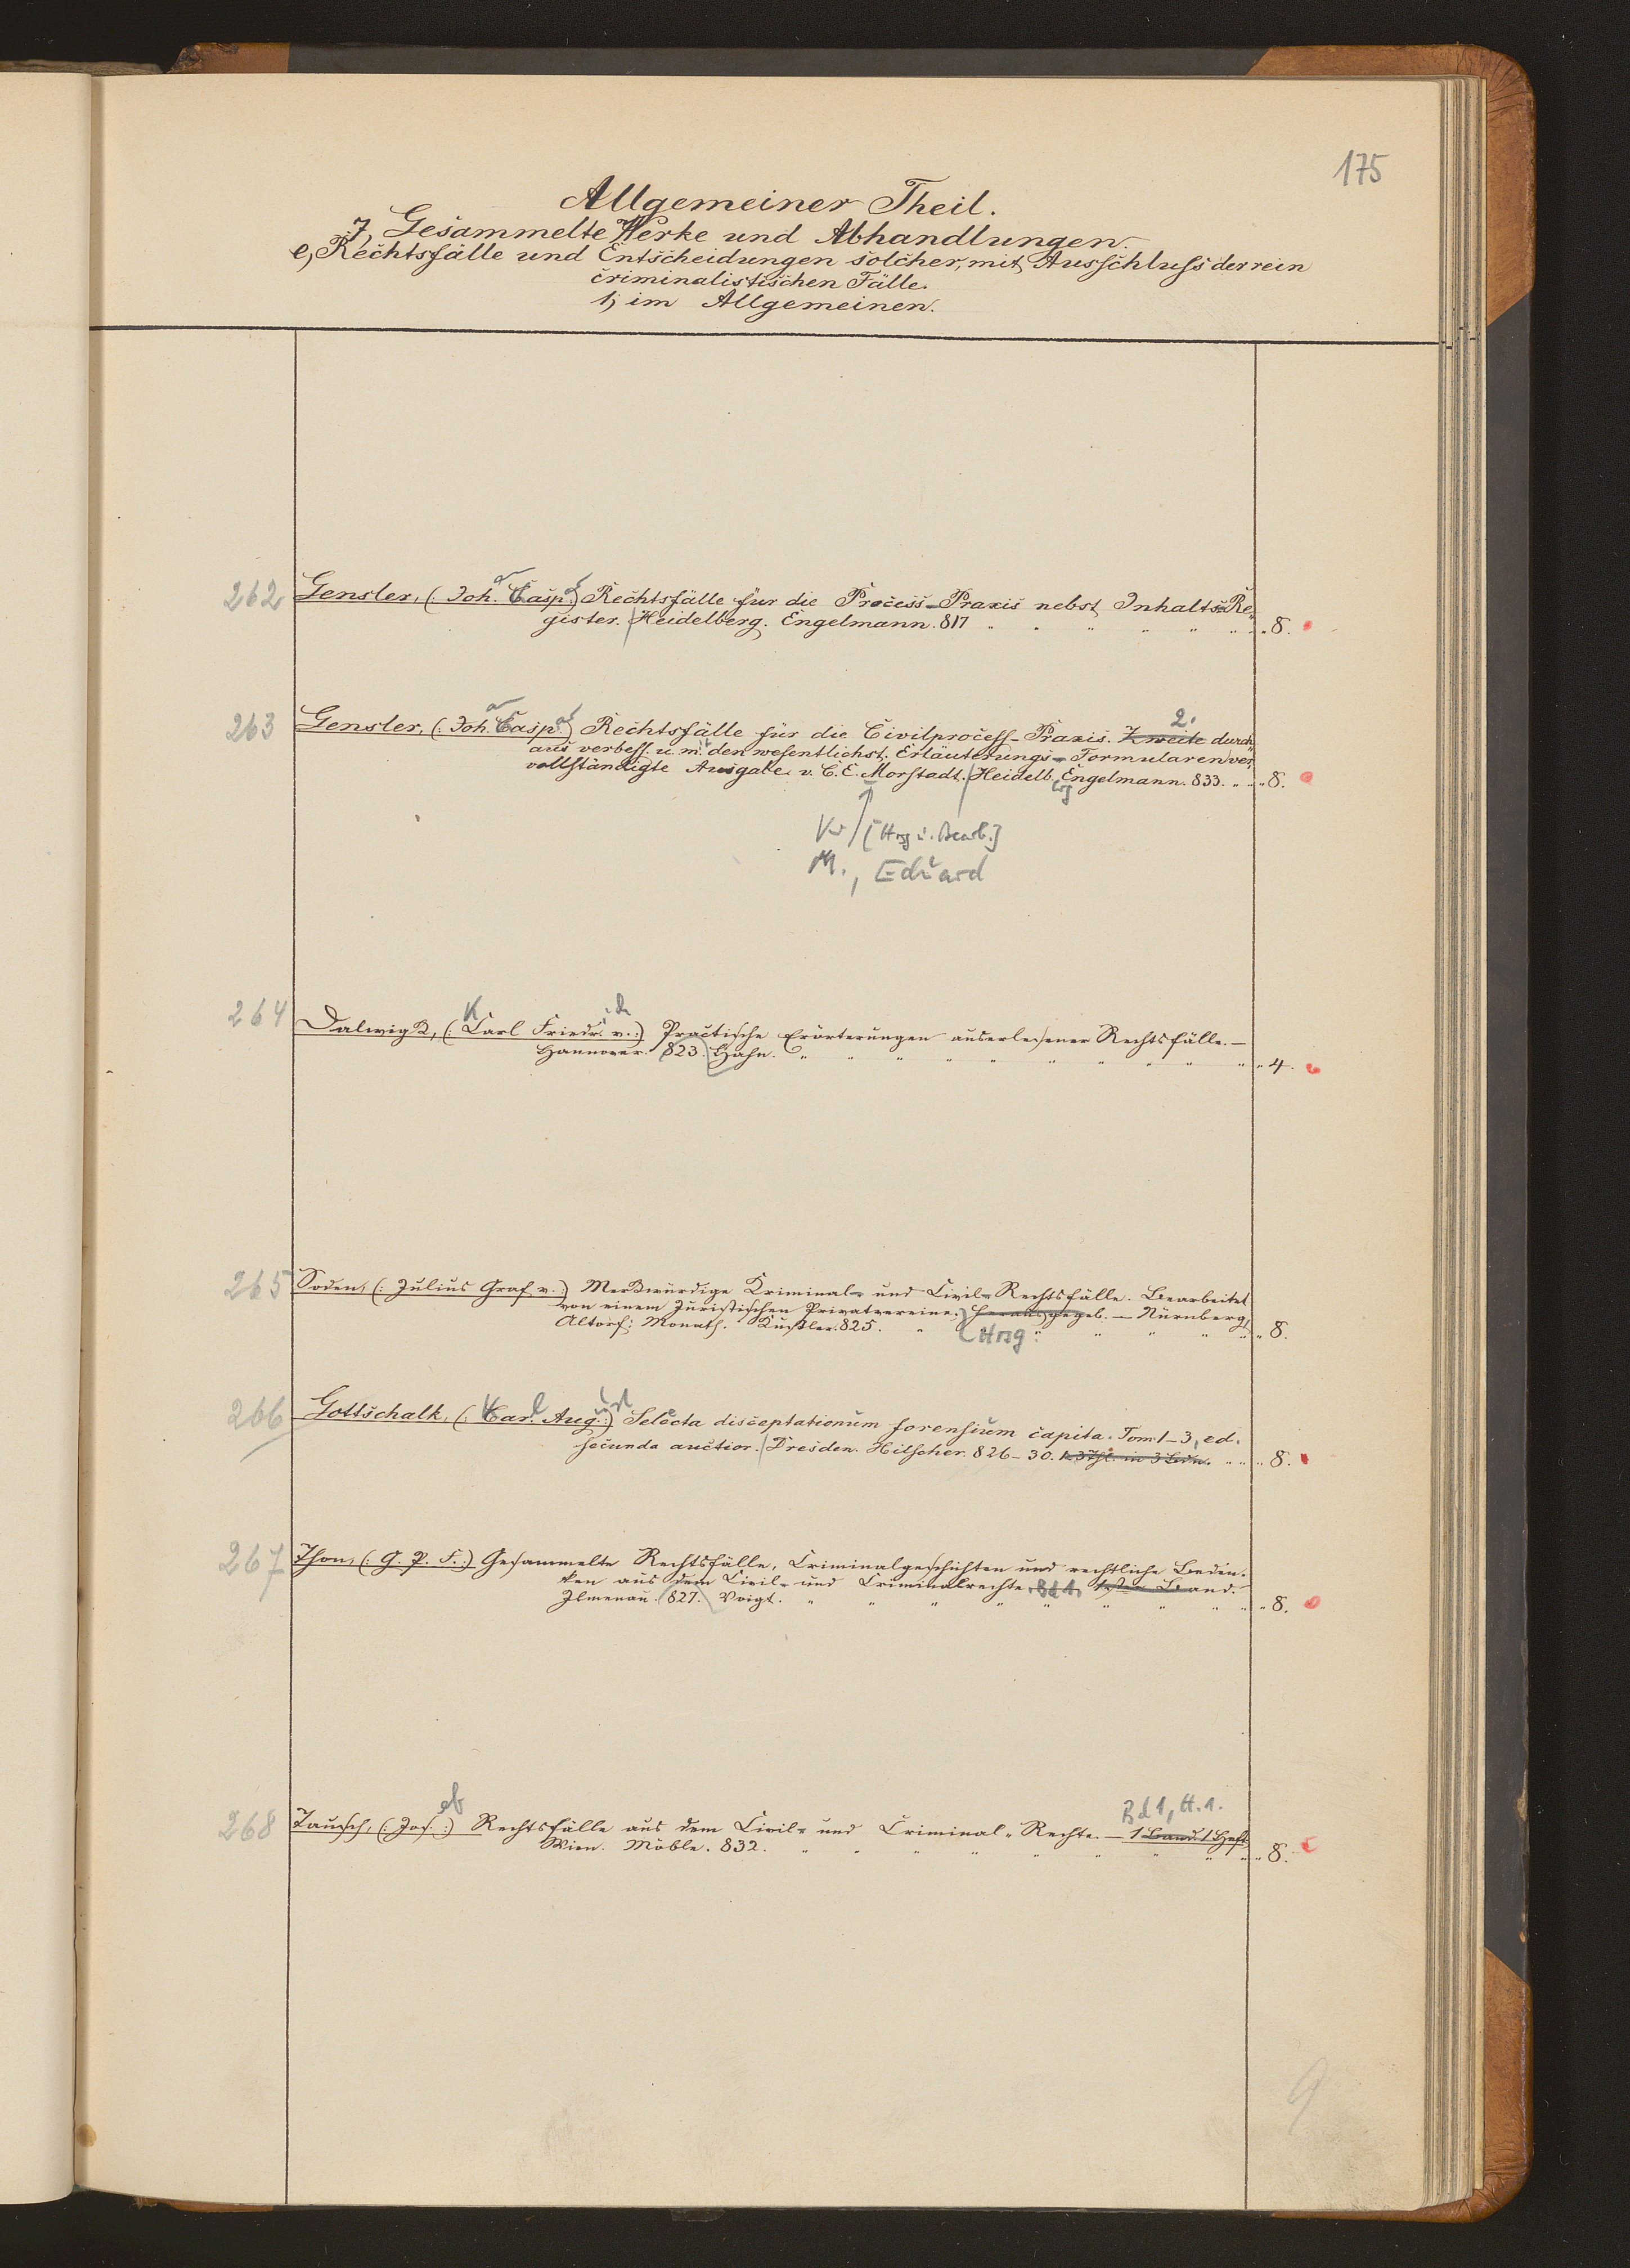 175
Allgemeiner Theil.
7, Gesammelte Werke und Abhandlungen.
e, Rechtsfälle und Entscheidungen solcher, mit Ausschluss der rein
criminalistischen Fälle.
1, im Allgemeinen.
262 Gensler, (: Joh. Casp. :) Rechtsfälle für die Process-Praxis nebst Inhalts-Re-
gister. Heidelberg. Engelmann. 817 „ 8.
263 Gensler, (: Joh. Casp. :) Rechtsfälle für die Civilprocess-Praxis. Zweite 2. durch-
aus verbess. u. m. den wesentlichst. Erläuterungs-Formularen ver-
vollständigte Ausgabe v. C. E. Morstadt. Heidelb. Engelmann. 833. „ 8.
Vw [Hrsg u. Bearb.]
M., Eduard
264 Dalwigk, (: Carl Friedr. v. :) Practische Erörterungen auserlesener Rechtsfälle. —
Hannover. 823. Hahn. „ 4.
265 Soden, (: Julius Graf v. :) Merkwürdige Kriminal- und Civil-Rechtsfälle. Bearbeitet
von einem Juristischen Privatvereine. herausgegeb. — Nürnberg,
Altorf: Monath. Kußler. 825. Hrsg: „ 8.
266 Gottschalk, (: Car. Aug. :) Selecta disceptationum forensium capita. Tom. 1–3, ed.
secunda auctior. Dresden. Hilscher. 826–30. 1–3 Thl. in 3 Bdn. „ 8.
267 Thon, (: G. P. F. :) Gesammelte Rechtsfälle, Criminalgeschichten und rechtliche Beden-
ken aus dem Civil- und Criminalrechte. Bd 1, 1ster Band. —
Ilmenau. 827. Voigt. „ 8.
Bd 1, H. 1.
268 Tausch, (: Jos. :) Rechtsfälle aus dem Civil- und Criminal-Rechte. — 1 Band. 1 Heft
Wien. Möble. 832. „ 8.
9